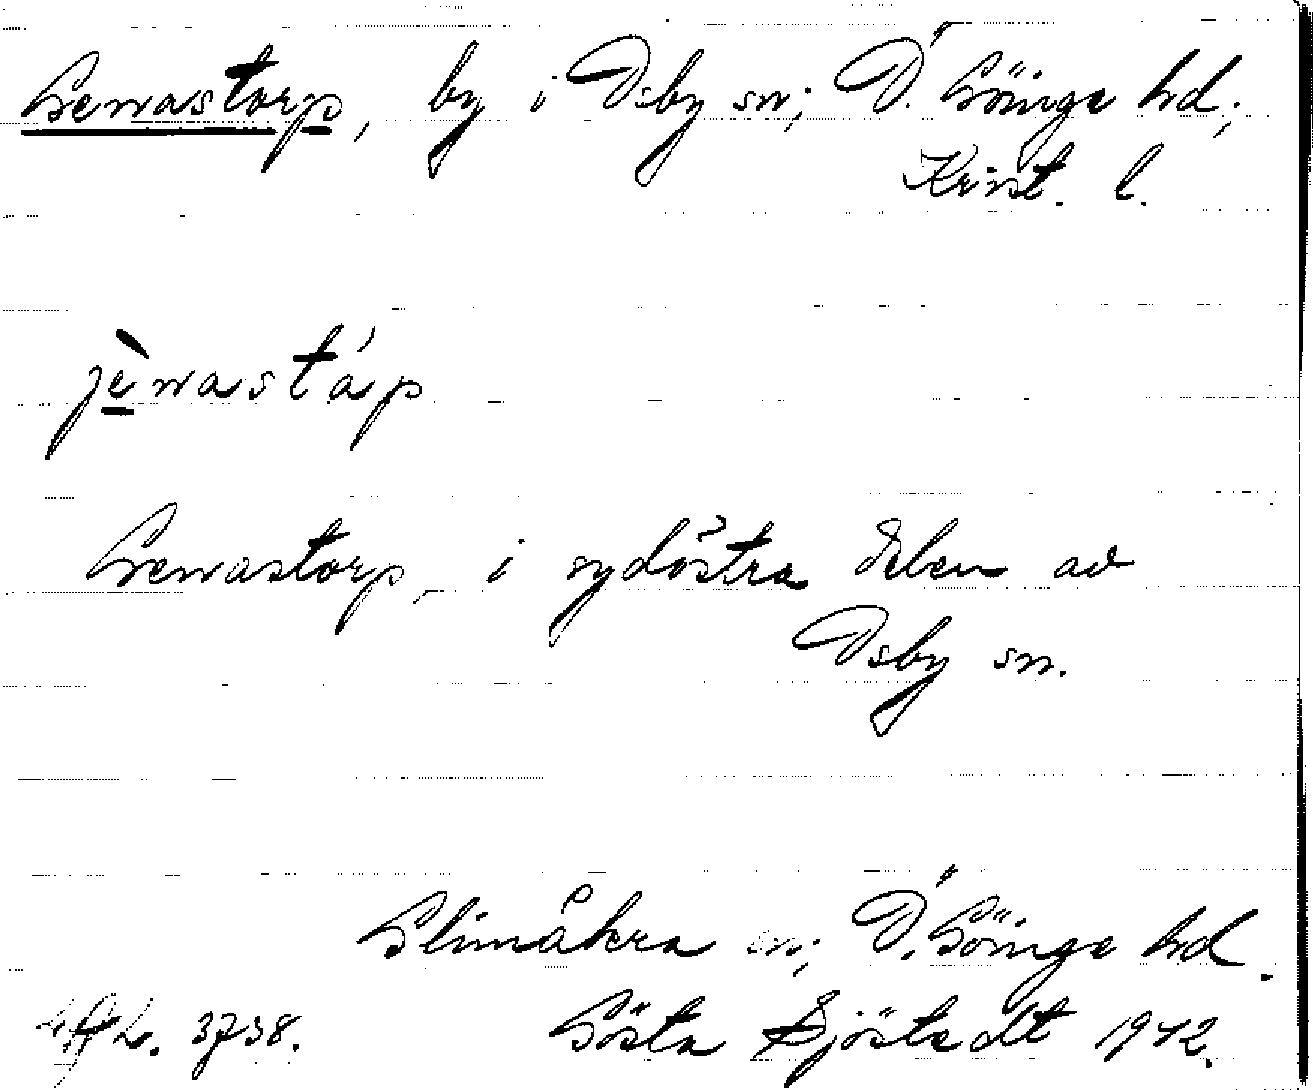 Genastorp, by i Osby sn; Ö. Göinge hd;
Krist. l.
jènastáp
Genastorp, i sydöstra delen av
Osby sn.
Glimåkra sn; Ö. Göinge hd.
3738. Gösta Sjöstedt 1942.